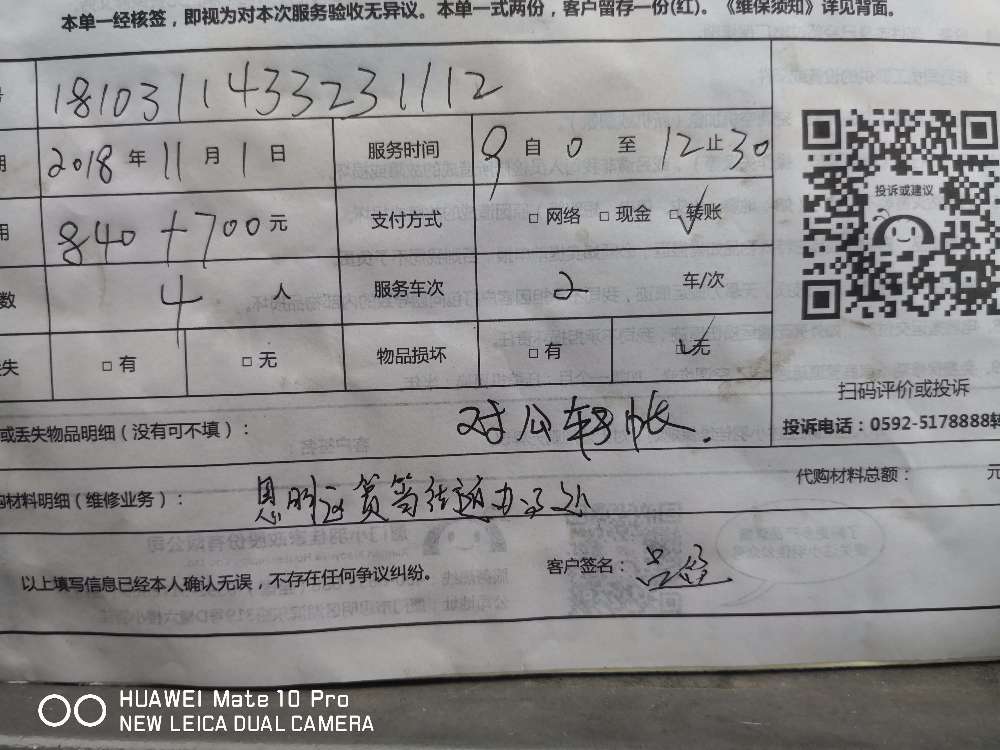 本单一经核签，即视为对本次服务验收无异议。本单一式两份，客户留存一份(红)。《维保须知》详见背面。
181031143323 1112
2018 年 11 月 1 日 服务时间 9 自 0 至 12 止 30
用 840 + 700 元 支付方式 □ 网络 □ 现金 ☑ 转账
投诉或建议
数 4 人 服务车次 2 车/次
失 □ 有 □ 无 物品损坏 □ 有 ☑ 无
扫码评价或投诉
或丢失物品明细（没有可不填）： 对公转帐.
投诉电话：0592-5178888转
购材料明细（维修业务）： 思明区 筼筜街道办
代购材料总额： 元
以上填写信息已经本人确认无误，不存在任何争议纠纷。 客户签名：
HUAWEI Mate 10 Pro
NEW LEICA DUAL CAMERA